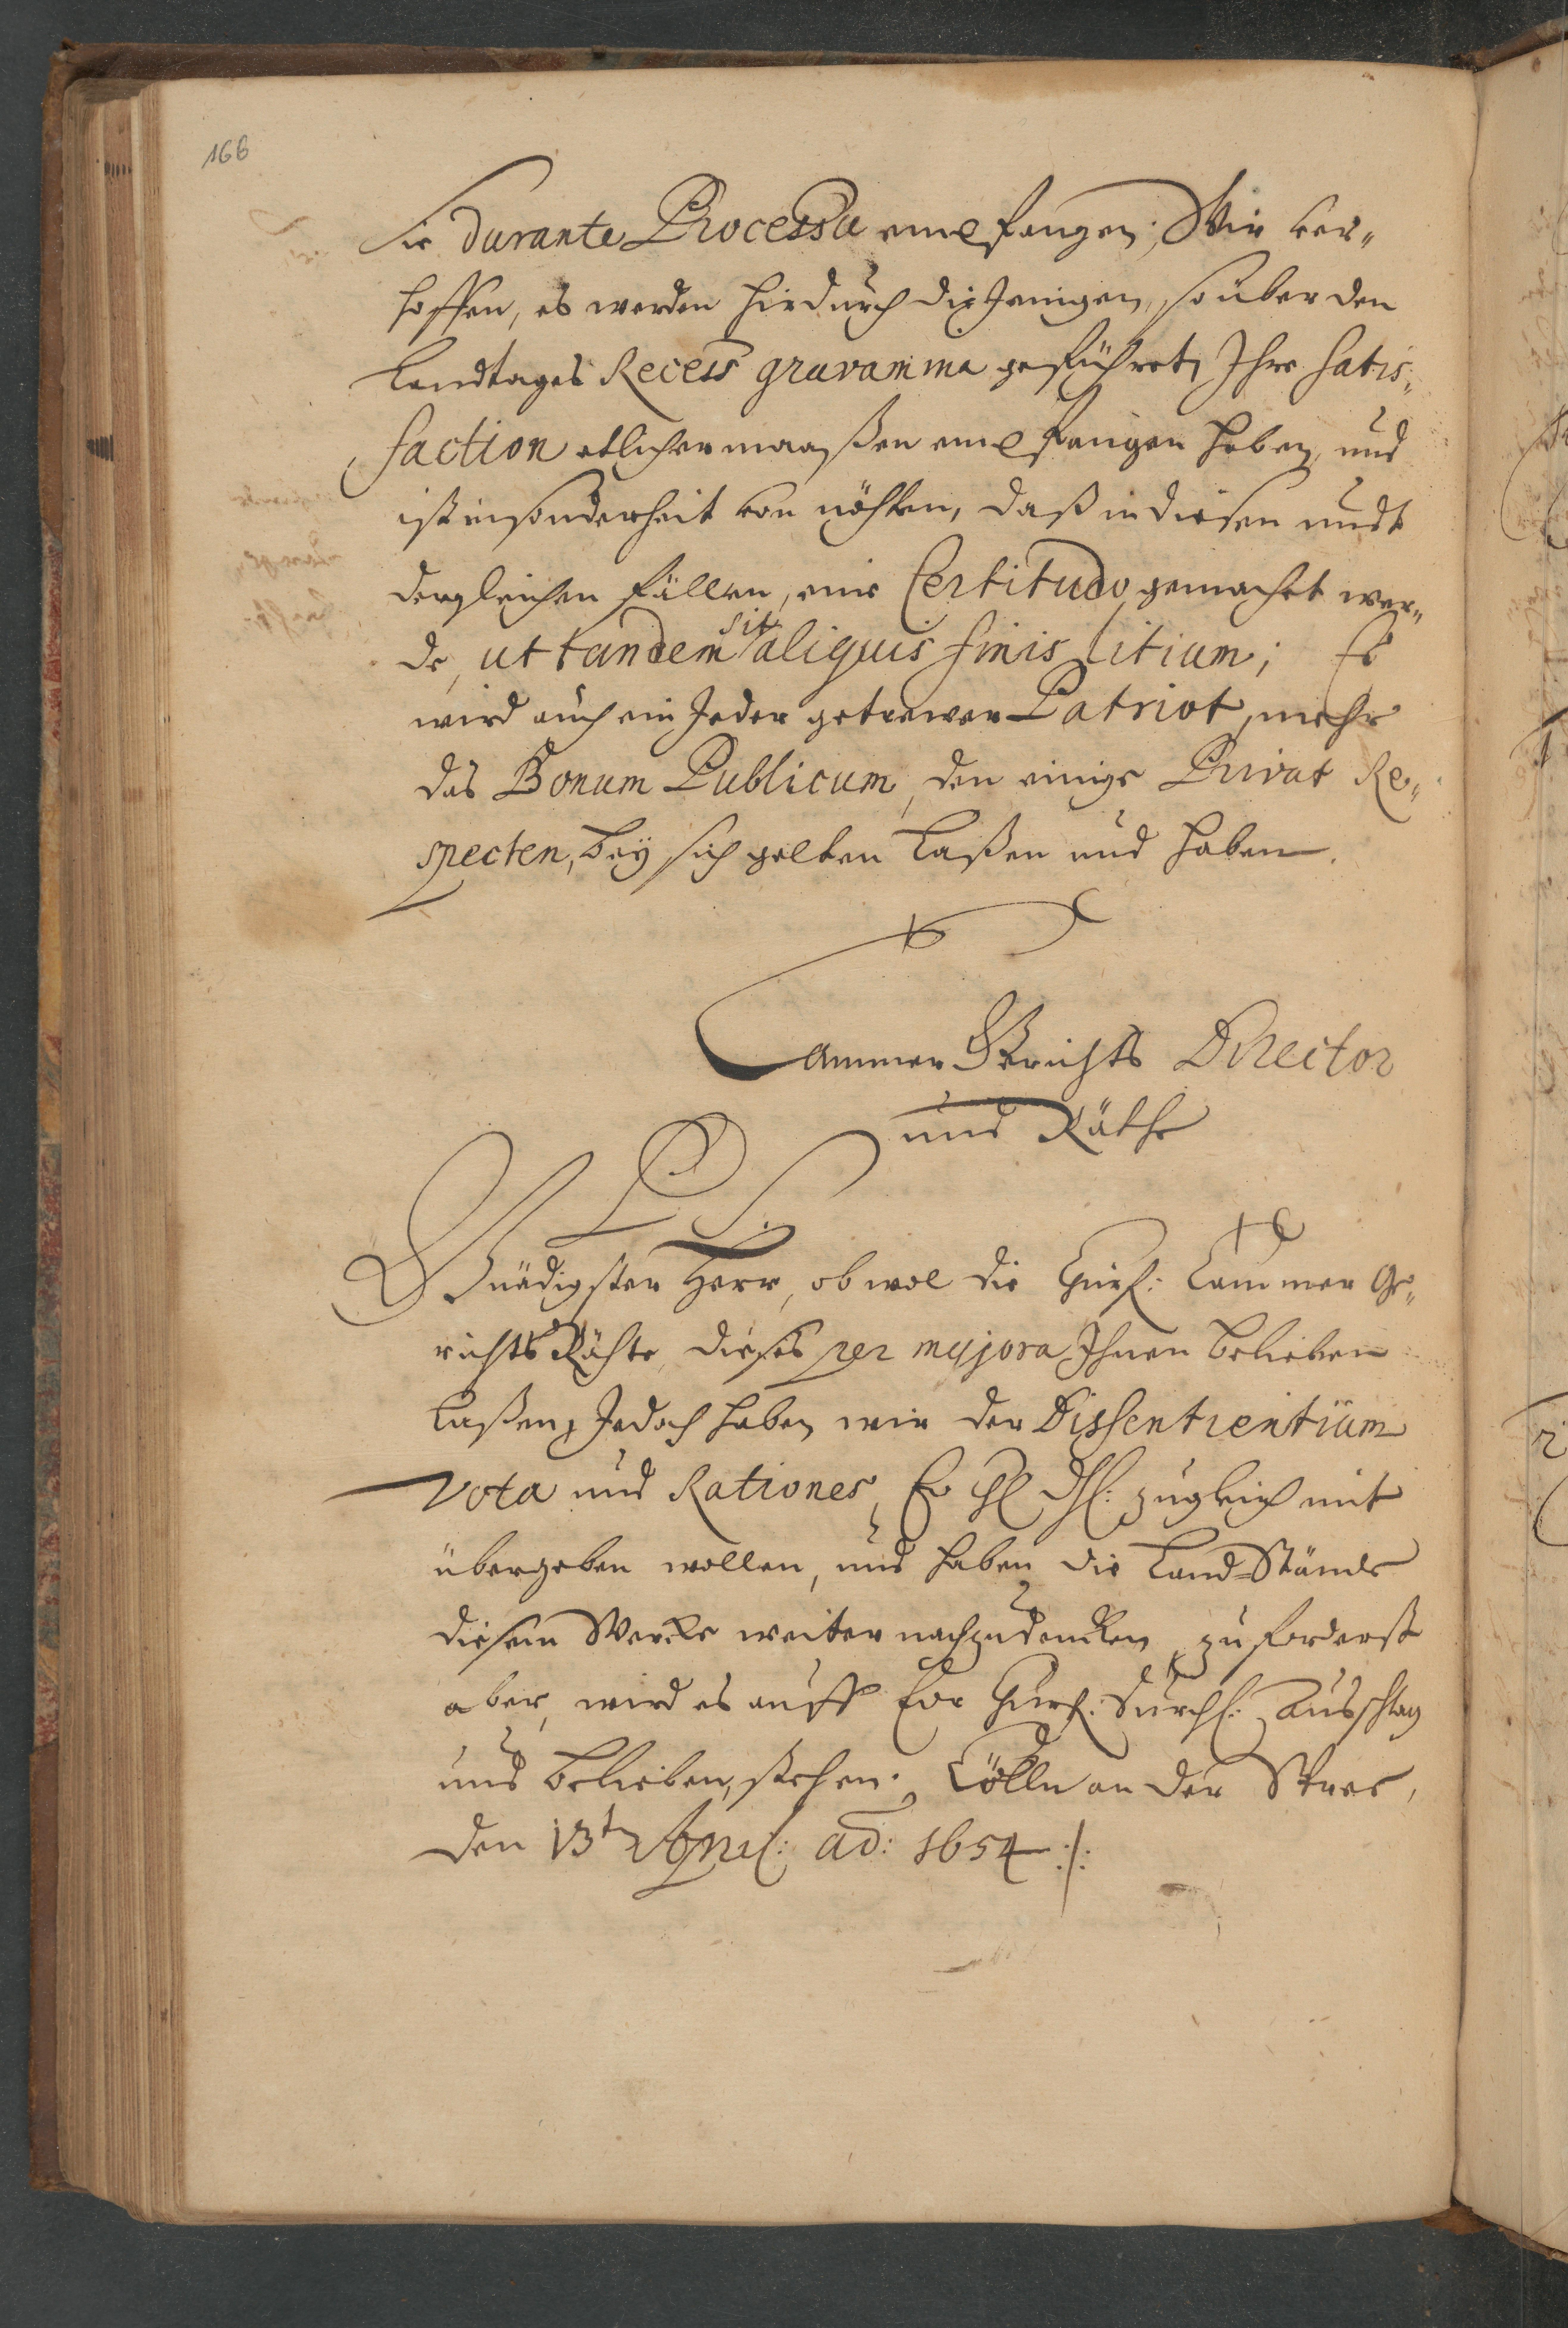 166
Sie durante Processu empfangen; Wir ver„
hoffen, es werden hirdurch diejenigen, so über den
Landtages Recess gravamina geführet, Ihre satis„
faction etlicher maaßen empfangen haben, und
ist insonderheit von nöhten, daß in diesen undt
dergleichen fällen, eine Certitudo gemachet wer„
de, ut tandem sit aliquis finis litium; Es
wird auch ein Jeder getrewer Patriot, mehr
das Bonum Publicum, den einige Privat Re„
specten, bey sich gelten laßen und haben.
Cammer Gerichts Director
und Räthe
P S.
Gnädigster Herr, ob wol die Churf: Cammer Ge„
richts Rähte, dieses per majora Ihnen belieben
laßen, Jedoch haben wir der Dissentientium
Vota und Rationes, Ew zugleich mit
übergeben wollen, und haben die Land-Stände
diesem Wercke weiter nachzudencken, zuforderst
aber, wird es auff Ewr Churf: Durchl: Ausschlag
und belieben, stehen. Cölln an der Spree,
den 13t April: ad: 1654 :/: